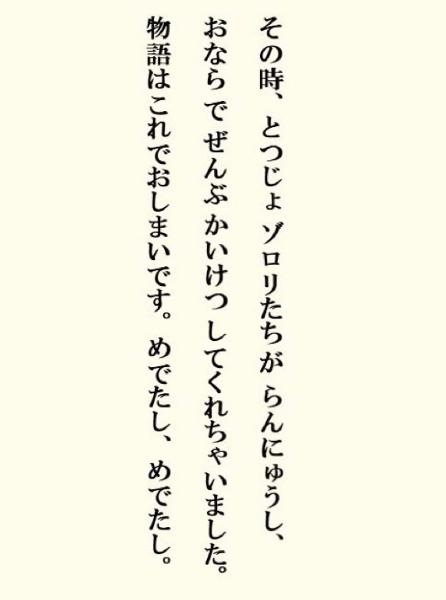 その時、とつじょ ゾロリたちが らんにゅうし、
おならで ぜんぶ かいけつ してくれちゃいました。
物語はこれでおしまいです。めでたし、めでたし。